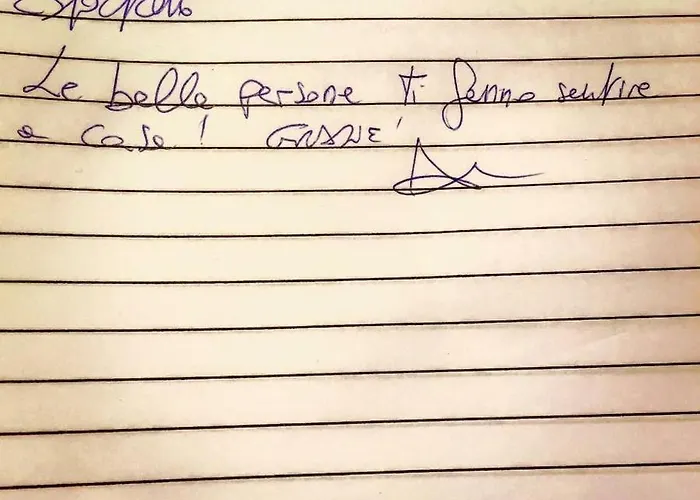 Le belle persone ti fanno sentire
a casa! GRAZIE!